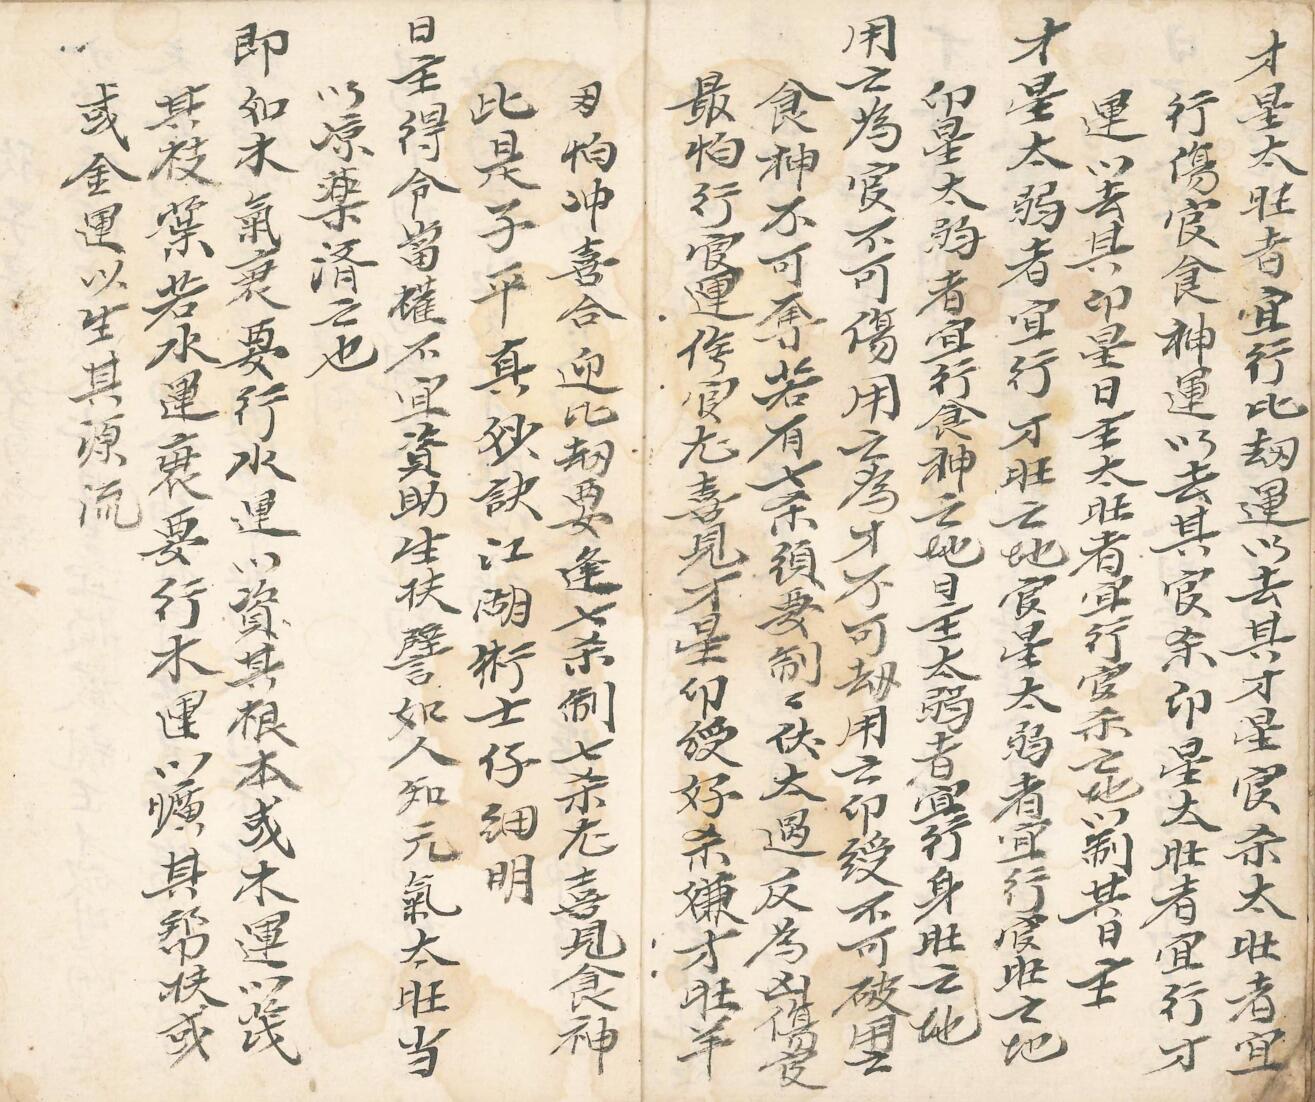 才星太旺者宜行比劫運以去其才星官杀太旺者宜
行傷官食神運以去其官杀印星太旺者宜行才
運以去其印星日主太旺者宜行官杀之地以制其日主
才星太弱者宜行才旺之地官星太弱者宜行官旺之地
印星太弱者宜行食神之地日主太弱者宜行身旺之地
用之為官不可傷用之為才不可劫用之印綬不可破用之
食神不可奪若有七杀須要制〻伏太過反為凶傷官
最怕行官運傷官尤喜見才星印綬好杀嫌才旺羊
刃怕冲喜合迎比劫要逢七杀制七杀尤喜見食神
此是子平真妙訣江湖術士仔細明
日主得令當權不宜資助生扶譬如人知元氣太旺当
以凉藥済之也
即如木氣衰要行水運以資其根本或木運以茂
其枝葉若水運衰要行水運以曠其帮扶或
或金運以生其源流